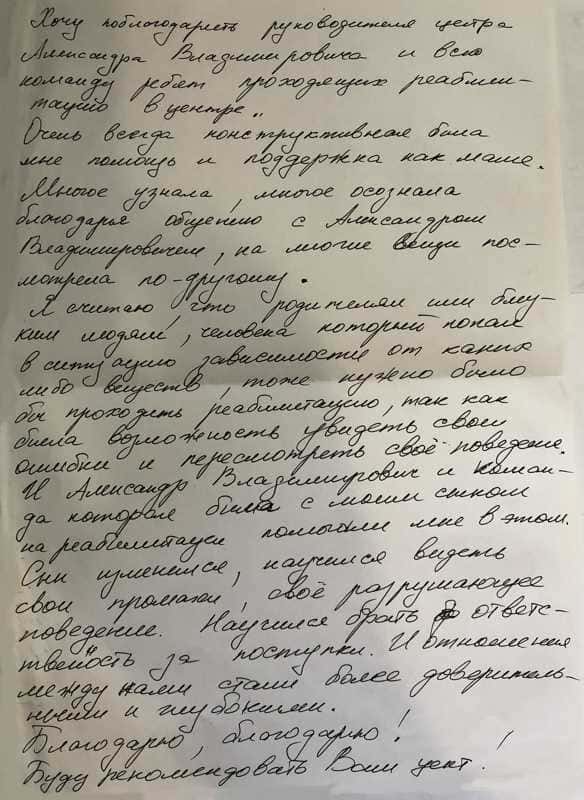 Хочу поблагодарить руководителя центра
Александра Владимировича и всю
команду ребят проходящих реабили-
тацию в центре..
Очень всегда конструктивная была
мне помощь и поддержка как маме.
Многое узнала, многое осознала
благодарья общению с Александром
Владимировичем, на многие вещи пос-
мотрела по-другому.
Я считаю, что родителям или близ-
ким людям, человека который попал
в ситуацию зависимости от каких
либо веществ, тоже нужно было
бы проходить реабилитацию, так как
была возможность увидеть свои
ошибки и пересмотреть своё поведение.
И Александр Владимирович и коман-
да которая была с моим сыном
на реабилитации помогали мне в этом.
Сын изменился, научился видеть
свои промахи, своё разрушающее
поведение. Научился брать ответс-
твенность за поступки. И отношения
между нами стали более доверитель-
ными и глубокими.
Благодарю, благодарю!
Буду рекомендовать Ваш цент!